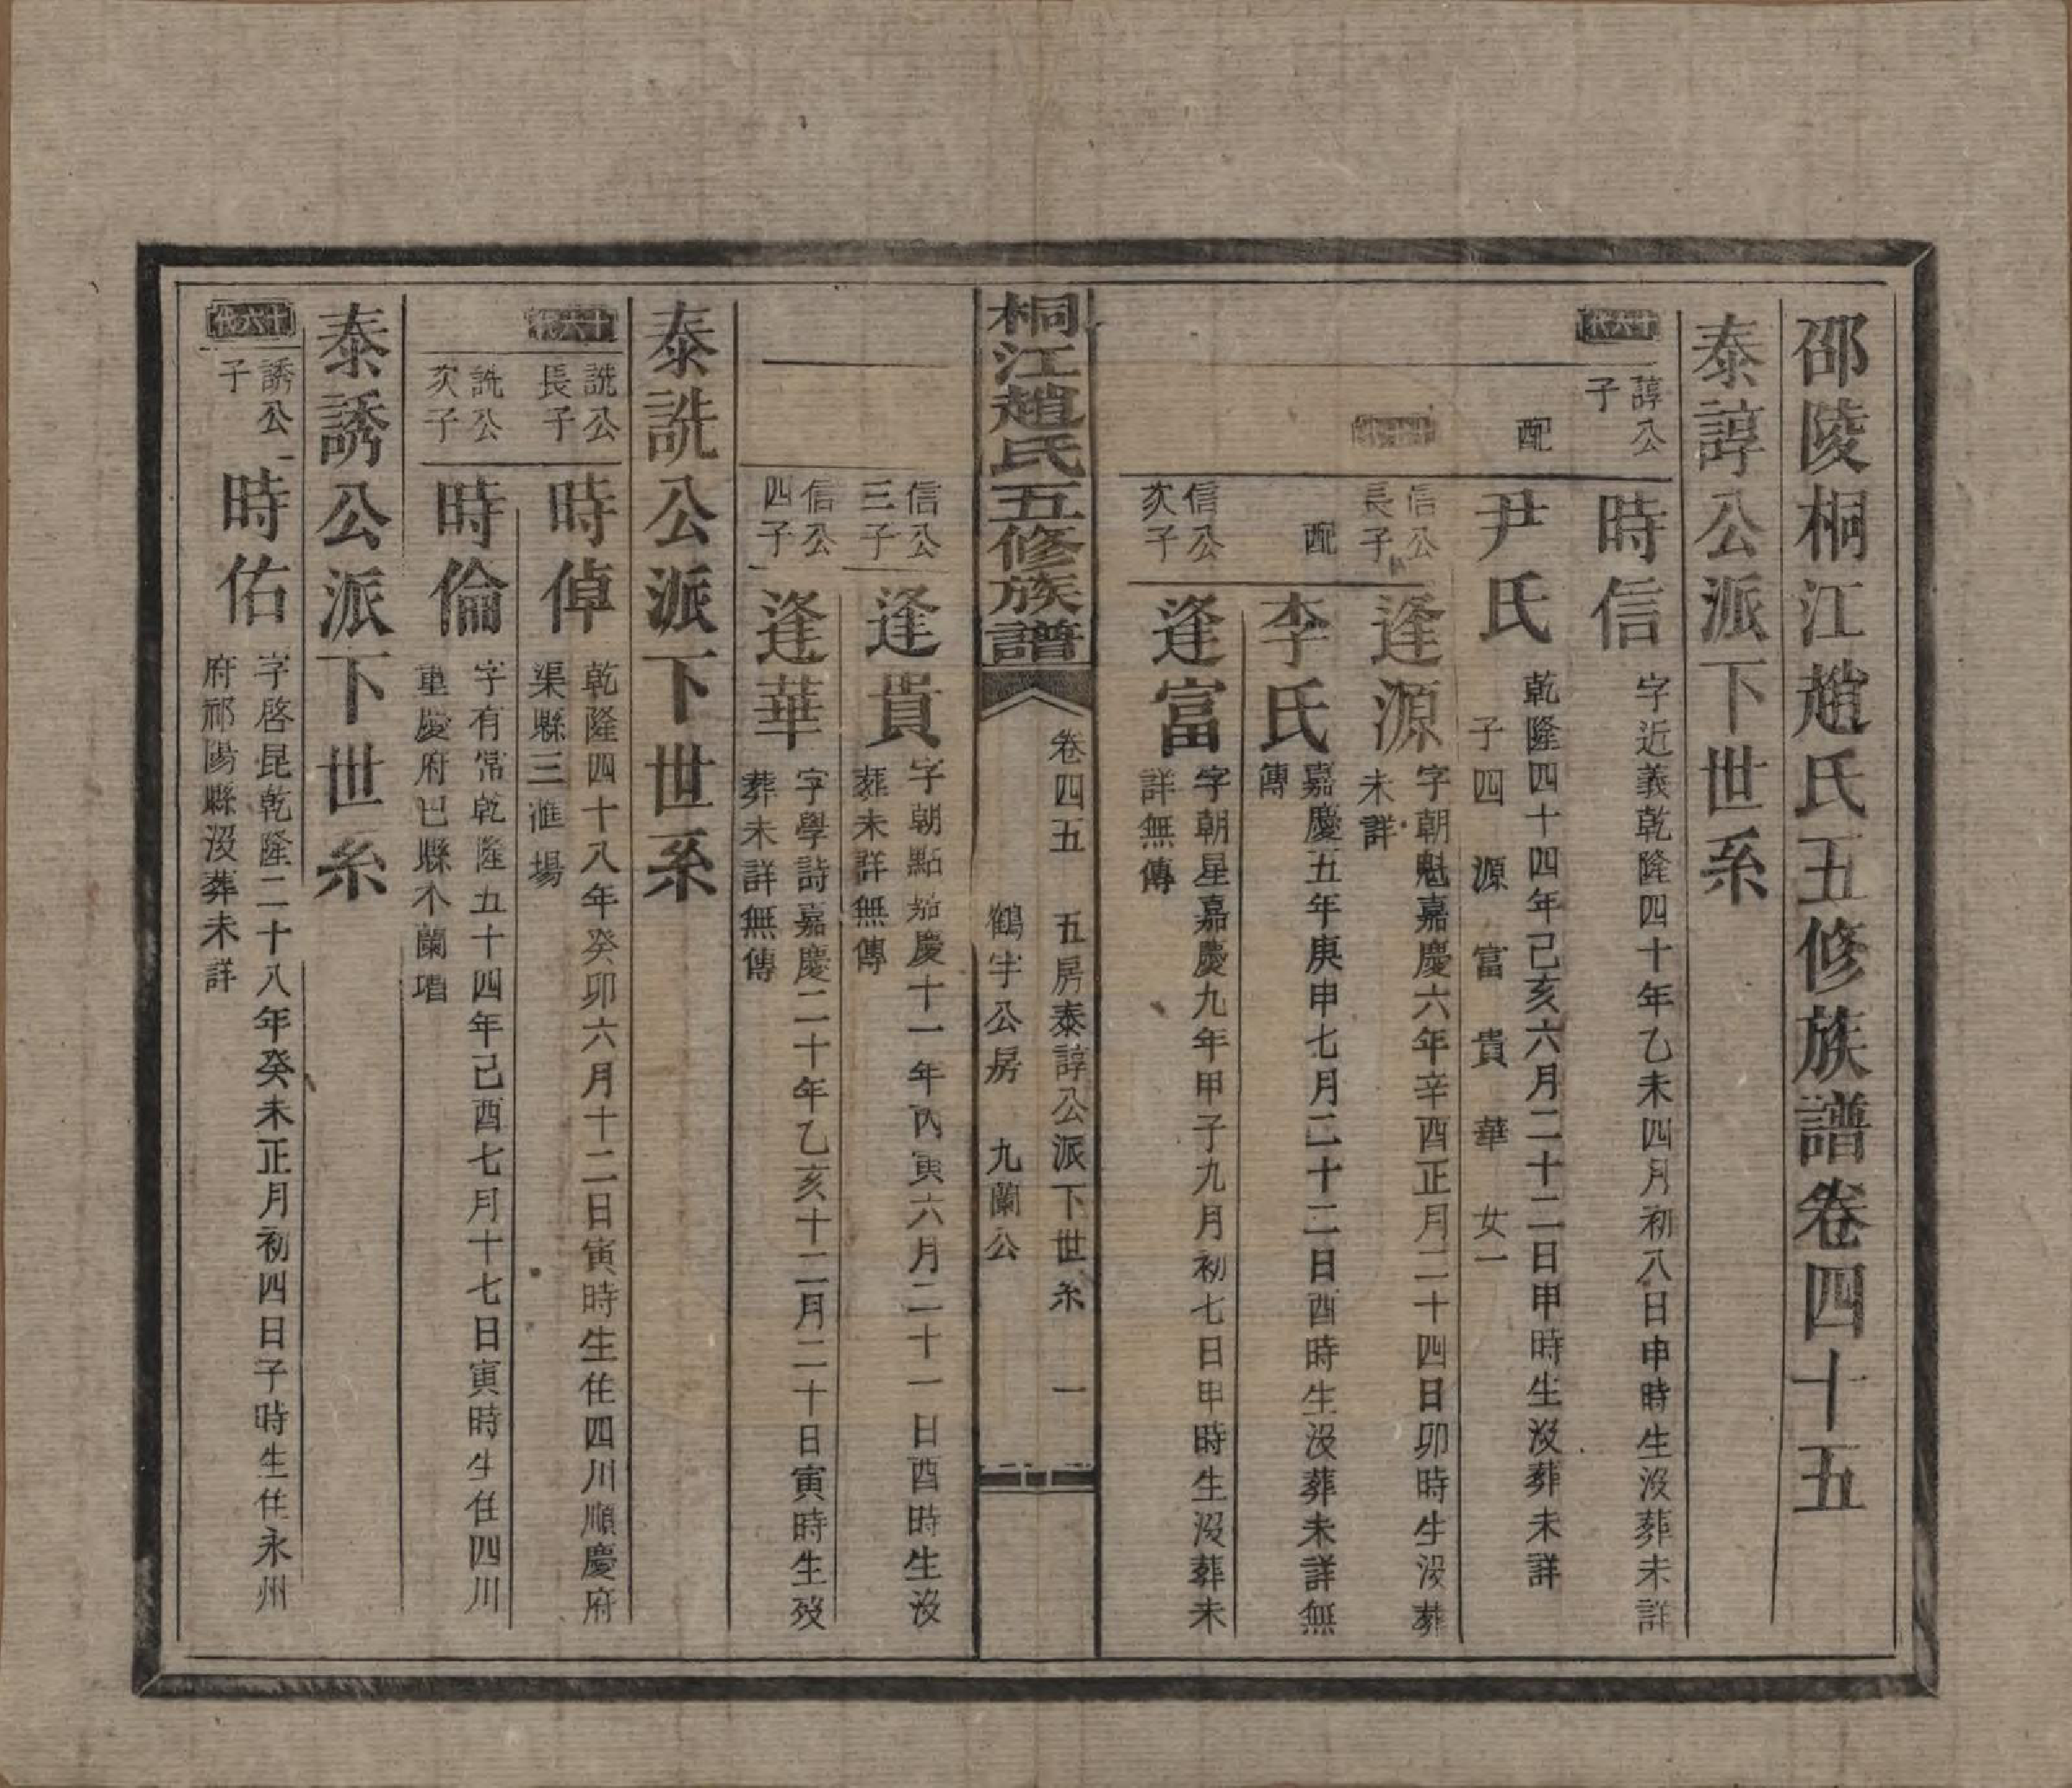 邵陵桐江趙氏五修族譜卷四十五
泰諄公派下世系
十六代
諄公
子
時信
字近義乾隆四十年乙未四月初八日申時生沒葬未詳
配
尹氏
乾隆四十四年己亥六月二十二日申時生沒葬未詳
子四 源 富 貴 華 女一
信公
長子
逢源
字朝魁嘉慶六年辛酉正月二十四日卯時生沒葬
未詳
配
李氏
嘉慶五年庚申七月二十二日酉時生沒葬未詳無
傳
信公
次子
逢富
字朝星嘉慶九年甲子九月初七日申時生沒葬未
詳無傳
桐江趙氏五修族譜
卷四五 五房泰諄公派下世系 一
鶴宇公房 九蘭公
信公
三子
逢貴
字朝點嘉慶十一年丙寅六月二十一日酉時生沒
葬未詳無傳
信公
四子
逢華
字學詩嘉慶二十年乙亥十二月二十日寅時生歿
葬未詳無傳
泰詵公派下世系
十六代
詵公
長子
時倬
乾隆四十八年癸卯六月十二日寅時生住四川順慶府
渠縣三滙場
詵公
次子
時倫
字有常乾隆五十四年己酉七月十七日寅時生住四川
重慶府巴縣木蘭垇
泰誘公派下世系
十六代
誘公
子
時佑
字啓昆乾隆二十八年癸未正月初四日子時生住永州
府祁陽縣沒葬未詳